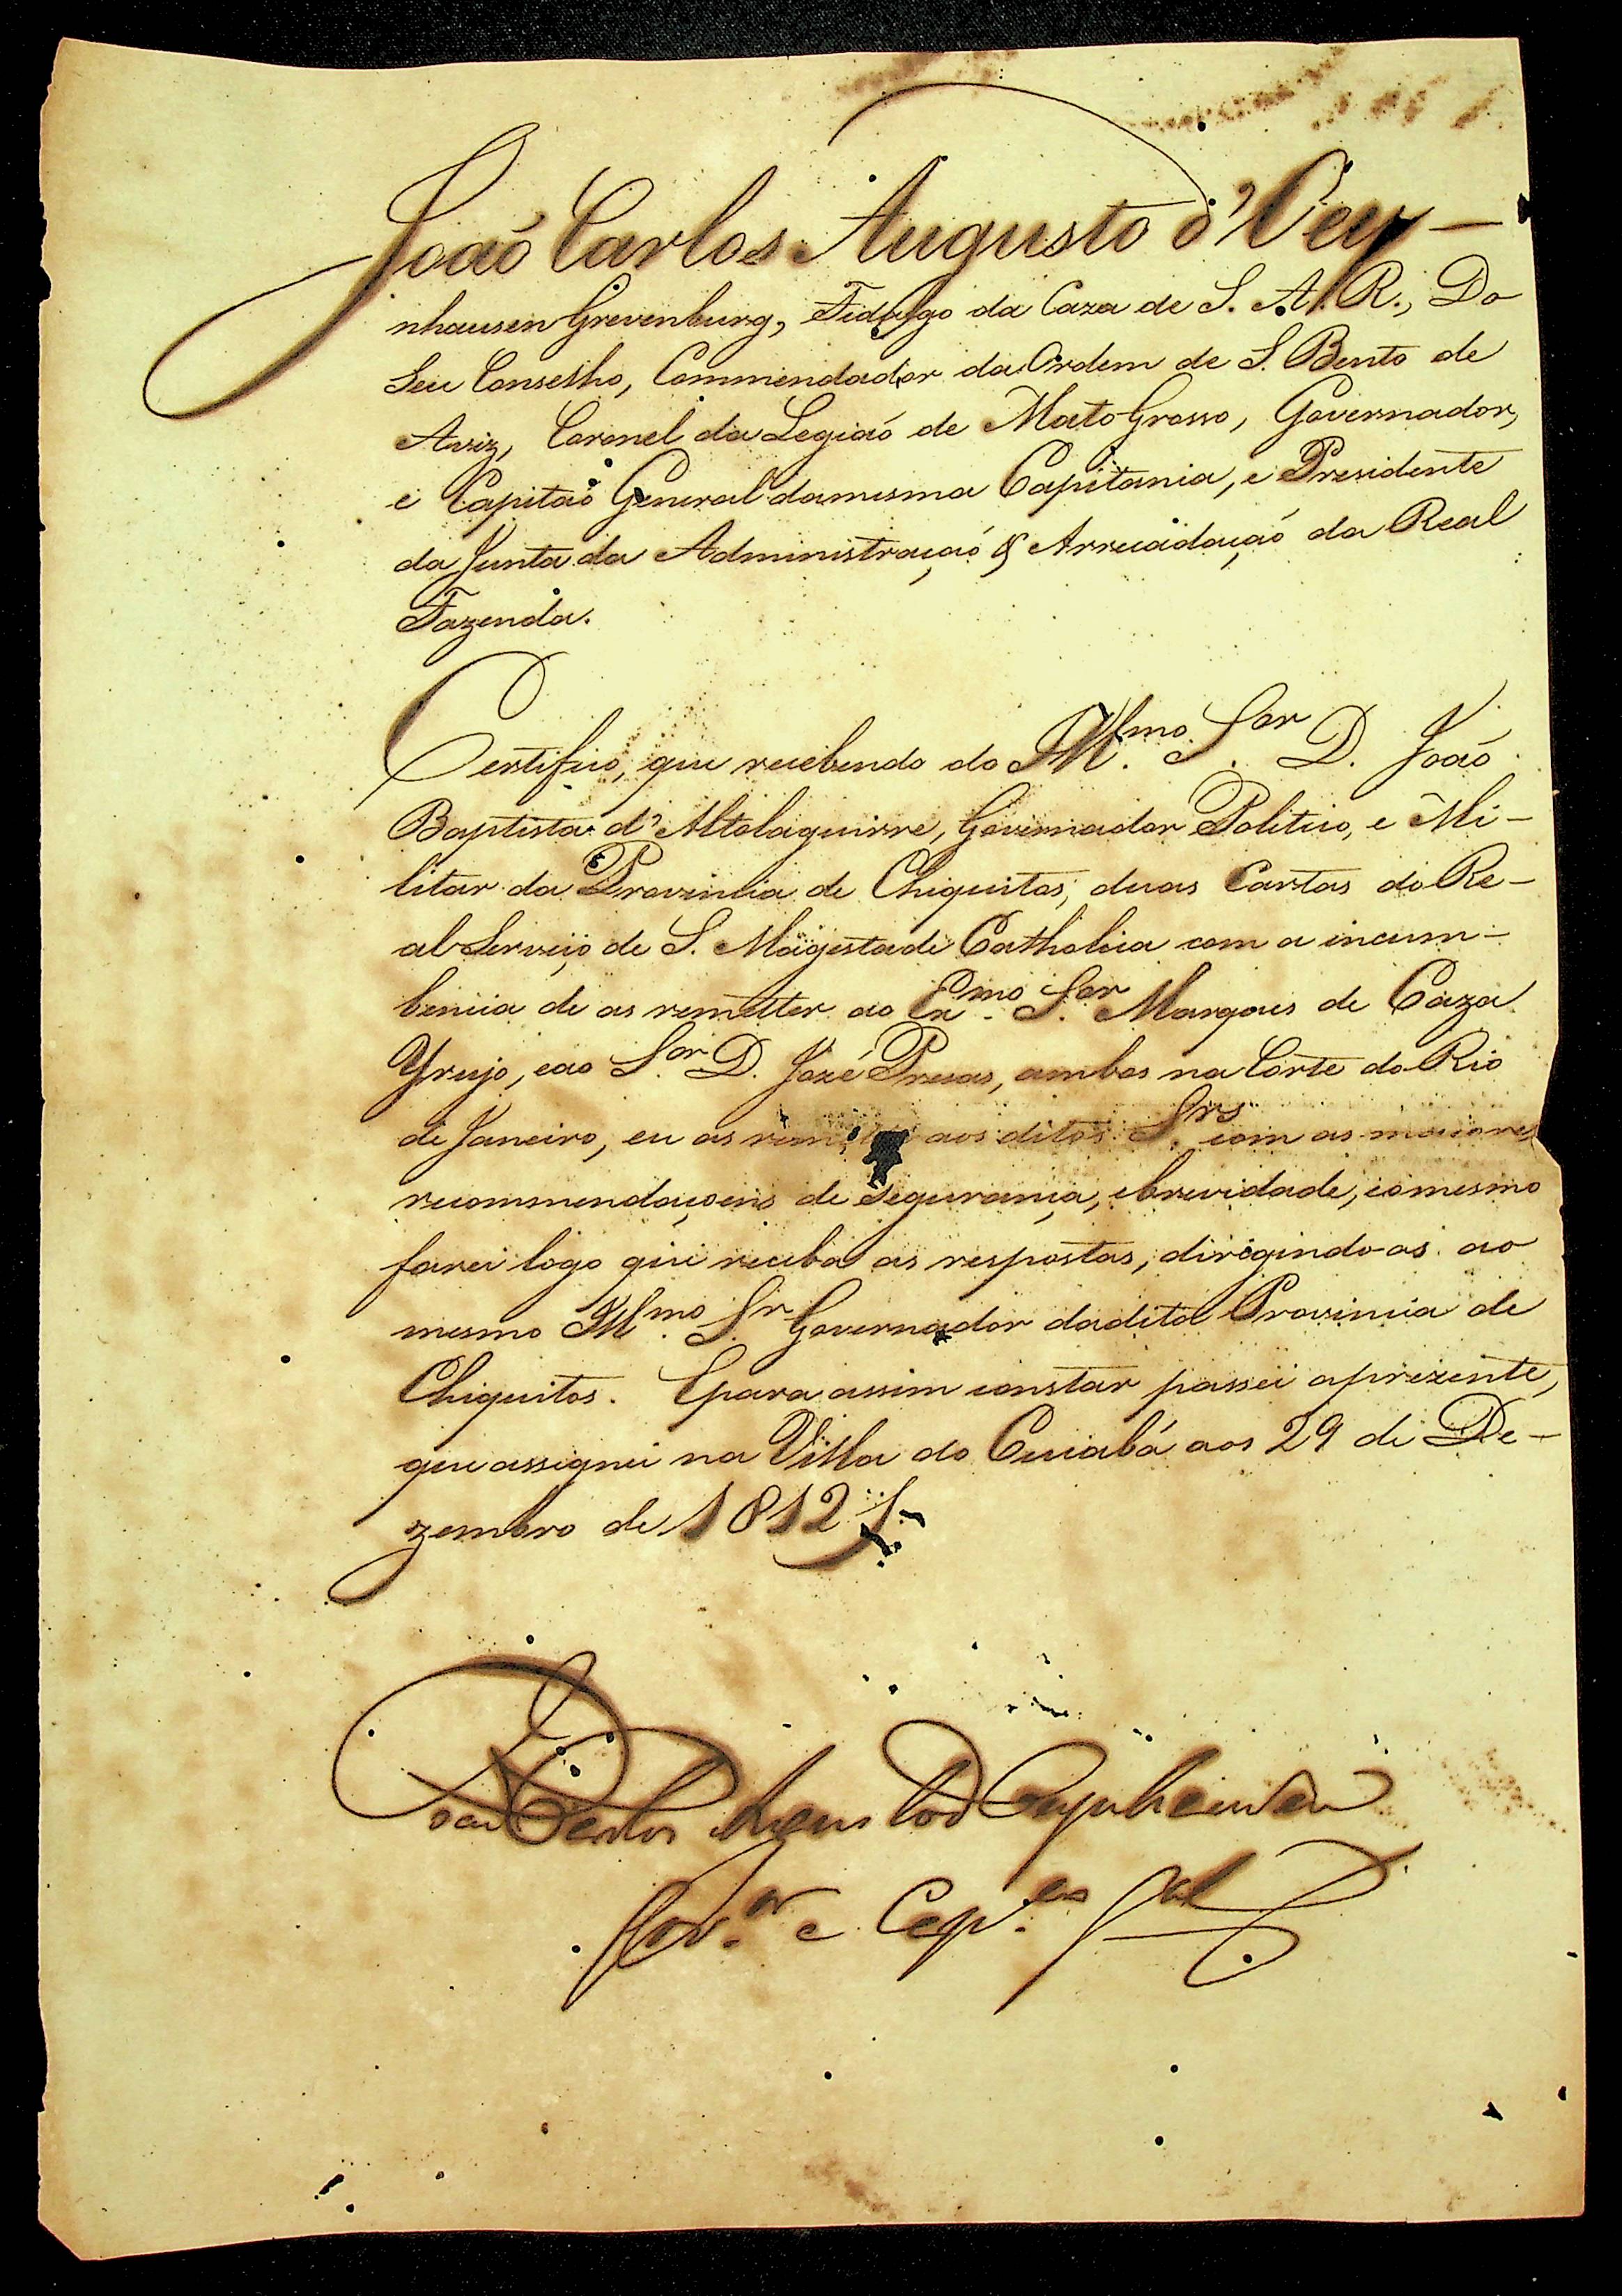 João Carlos Augusto d'Oey-
nhausen Grevenburg, Fidalgo da Caza de S. A. R., Do
Seu Conselho, Commendador da Ordem de S. Bento de
Aviz, Coronel da Legiaõ de Mato Grosso, Governador,
e Capitaõ General damesma Capitania, e Presidente
da Junta da Administraçaõ & Arrecadaçaõ da Real
Fazenda.
Certifico, que recebendo do Ill.mo S.or D. Joaõ
Baptista d'Altolaguirre, Governador Politico, e Mi-
litar da Provincia de Chiquitos, duas Cartas do Re-
al Serviço de S. Magestade Catholica com a incum-
bencia de as remetter ao Ex.mo S.or Marques de Caza
Yrujo, eao S.or D. Jozé Presas, ambos na Corte do Rio
de Janeiro, eu as aos ditos S.rs com as maiores
recommendaçoens de Segurança, ebrevidade, eomesmo
farei logo que receba as respostas, dirigindo-as ao
mesmo Ill.mo S.r Governador dadita Provincia de
Chiquitos. Epara assim constar passei aprezente,
que assignei na Villa do Cuiabá aos 29 de De-
zembro de 1812
João Carlos Augusto d'Oeynhausen
Gov.or e Cap.am G.al